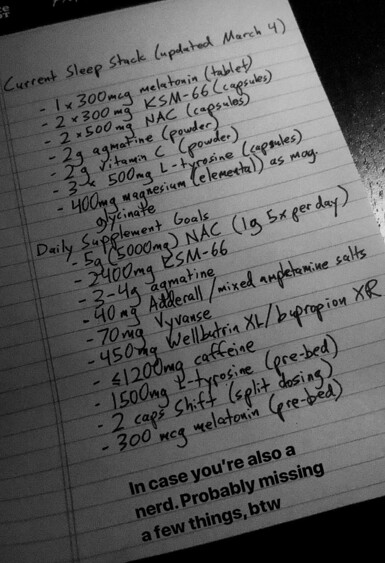 Current Sleep Stack (updated March 4)
- 1 x 300mcg melatonin (tablet)
- 2 x 300 mg KSM-66 (capsules)
- 2 x 500 mg NAC (capsules)
- 2g agmatine (powder)
- 2g Vitamin C (powder)
- 3 x 500mg L-tyrosine (capsules)
- 400mg magnesium (elemental) as mag.
glycinate
Daily Supplement Goals
- 5g (5000mg) NAC (1g 5x per day)
- 2400mg KSM-66
- 3-4g agmatine
- 40 mg Adderall/mixed ampetamine salts
- 70mg Vyvanse
- 450mg Wellbutrin XL/bupropion XR
- ≤1200mg caffeine
- 1500mg L-tyrosine (pre-bed)
- 2 caps Shift (split dosing)
- 300 mcg melatonin (pre-bed)
In case you're also a
nerd. Probably missing
a few things, btw